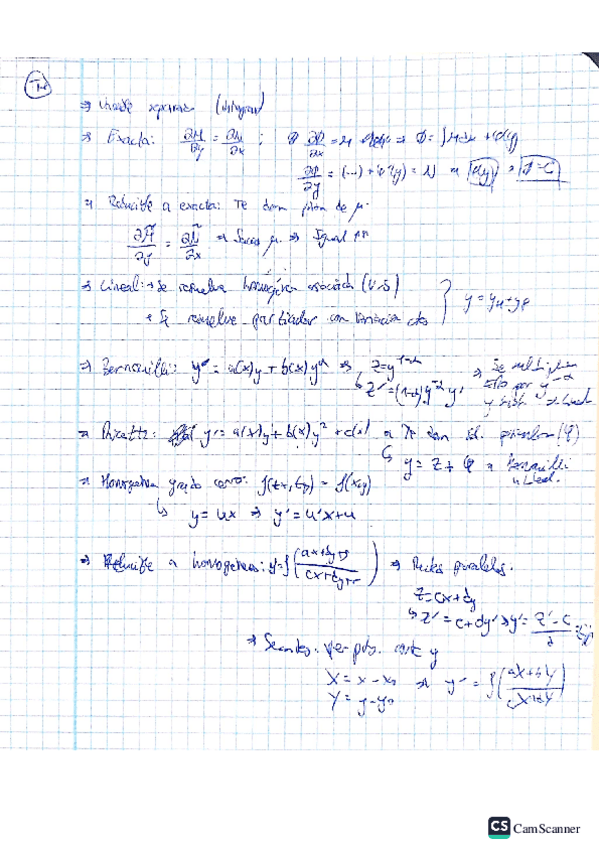 T1
⇒ Variable separada (integrar)
⇒ Exacta: ∂M/∂y = ∂N/∂x ; ∂Φ/∂x = M ⇒ Φ = ∫M dx + φ(y)
∂Φ/∂y = (...) + φ'(y) = N ⇒ φ(y) ⇒ Φ = C
⇒ Reducible a exacta: Te dan pista de μ.
∂M̃/∂y = ∂Ñ/∂x ⇒ Sacas μ ⇒ Igual
⇒ Lineal: • Se resuelve homogénea asociada (V.S)
• Se resuelve particular con variación ctes } y = yH + yP
⇒ Bernouilli: y' = a(x)y + b(x)y^α ⇒ z = y^(1-α)
↳ z' = (1-α)y^(-α) y' ⇒ Se multiplica
Ello por y^(-α)
y sust. ⇒ Lineal
⇒ Ricatti: y' = a(x)y + b(x)y² + c(x) ⇒ Te dan sol. particular (φ)
↳ y = z + φ ⇒ Bernouilli
o Lineal.
⇒ Homogénea grado cero: f(tx, ty) = f(x,y)
↳ y = ux ⇒ y' = u'x + u
⇒ Reducible a homogénea: y' = f((ax+by+s)/(cx+dy+r)) ⇒ Rectas paralelas.
z = cx + dy
↳ z' = c + dy' ⇒ y' = (z' - c)/d
⇒ Secantes: Ver pto. corte y
X = x - x₀
Y = y - y₀ ⇒ y' = f((aX+bY)/(cX+dY))
CS CamScanner